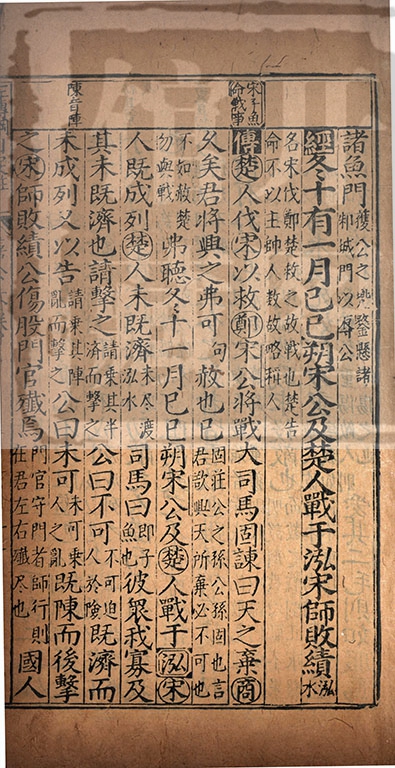 諸魚門獲公之冑鍪懸諸
邾城門以辱公
經冬十有一月己巳朔宋公及楚人戰于泓宋師敗績泓水
名宋伐鄭楚救之故戰也楚告
命不以主帥人数故略稱人
宋子魚
戰事
傳楚人伐宋以救鄭宋公將戰大司馬固諫曰天之棄商
乆矣君將興之弗可句赦也已固莊公之孫公孫固也言
君欲興天所棄必不可也
不知赦楚
勿與戰弗聽冬十一月己巳朔宋公及楚人戰于泓宋
人既成列楚人未既濟未尽渡泓水司馬曰即子魚也彼衆我寡及
其未既濟也請擊之請乘其半濟而擊之公曰不可不可迫人於險既濟而
陳音陣
未成列又以告請乘其陣亂而擊之公曰未可未可乘人之亂既陳而後擊
之宋師敗績公傷股門官殲焉門官守門者師行則在君左右殲尽也國人